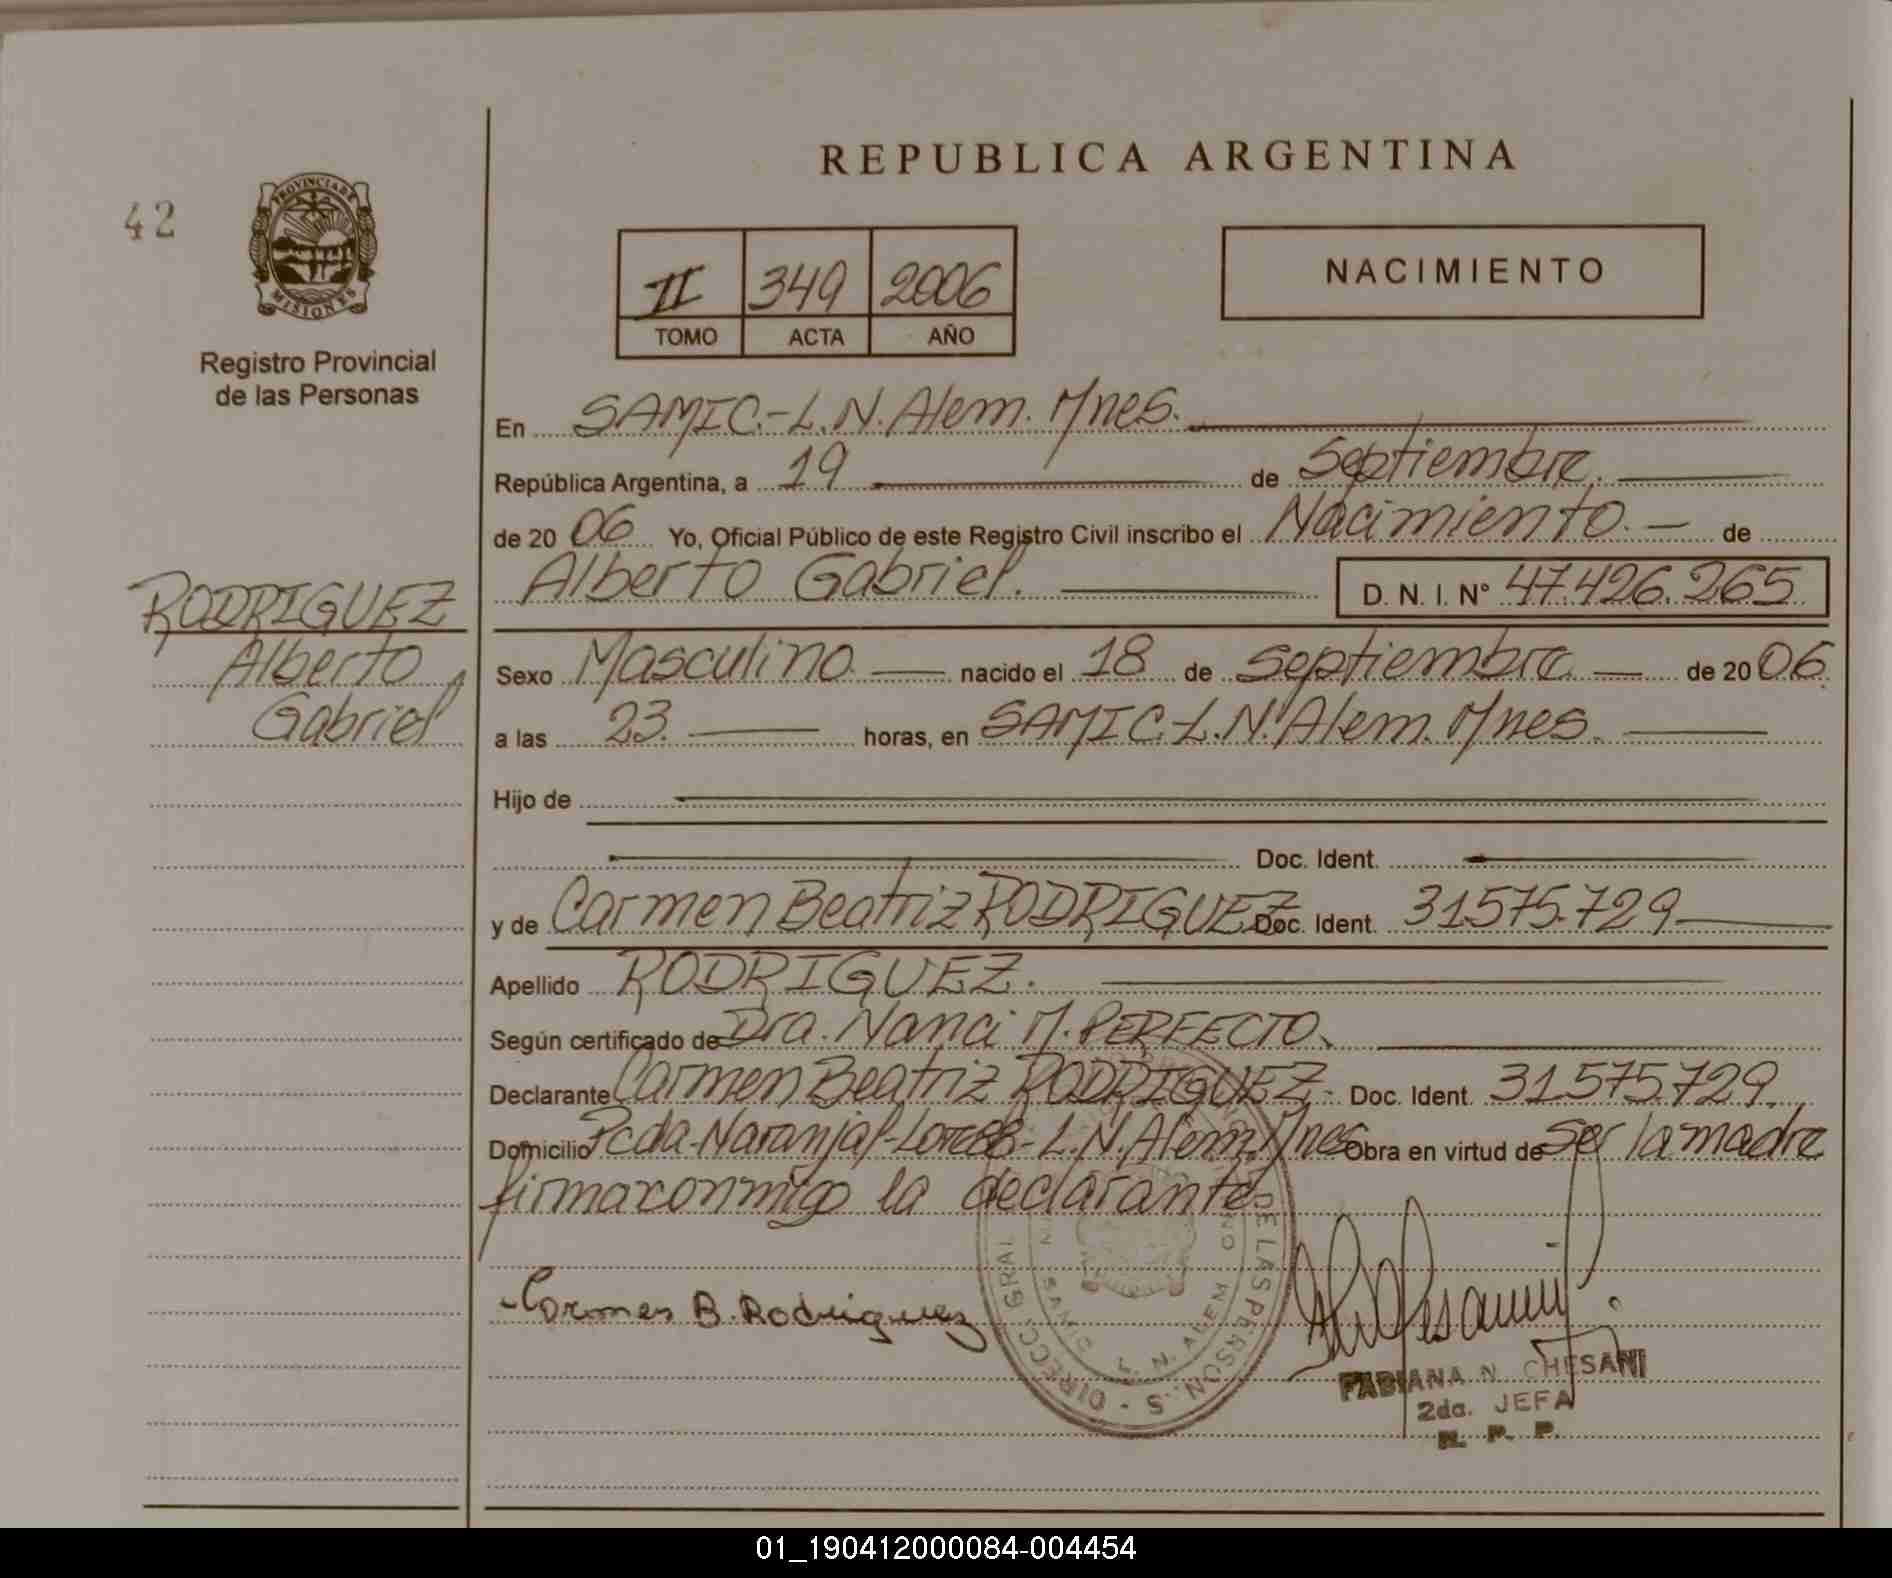 REPUBLICA ARGENTINA
42
PROVINCIA DE
MISIONES
Registro Provincial
de las Personas
II 349 2006
TOMO ACTA AÑO
NACIMIENTO
En SAMIC.-L.N.Alem. Mnes.
República Argentina, a 19 de Septiembre.
de 2006 Yo, Oficial Público de este Registro Civil inscribo el Nacimiento. de
Alberto Gabriel. D. N. I. Nº 47.426.265
RODRIGUEZ
Alberto
Gabriel
Sexo Masculino nacido el 18 de Septiembre de 2006.
a las 23. horas, en SAMIC.L.N.Alem. Mnes.
Hijo de
y Doc. Ident.
y de Carmen Beatriz RODRIGUEZ Doc. Ident. 31.575.729
Apellido RODRIGUEZ.
Según certificado de Dra. Nanci M. PERFECTO.
Declarante Carmen Beatriz RODRIGUEZ.- Doc. Ident. 31.575.729.
Domicilio Pcda-Naranjal- L.N.Alem. Mnes Obra en virtud de Ser la madre
firma conmigo la declarante
Carmen B. Rodriguez
DIRECC. GRAL DE LAS PERSON.S
L. N. ALEM
FABIANA N. CHESANI
2da. JEFA
R. P. P.
01_190412000084-004454